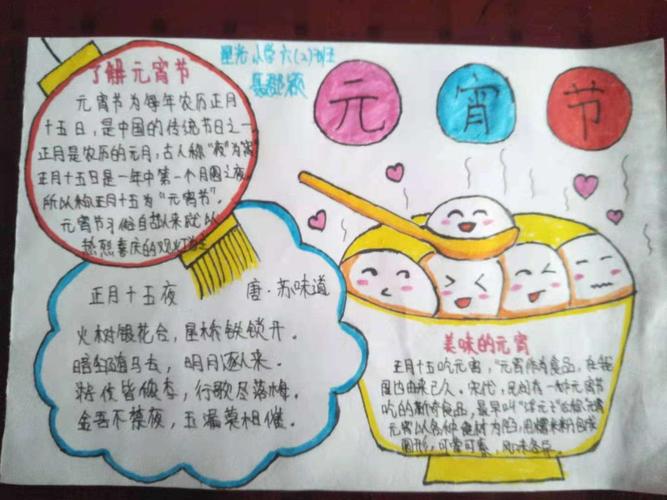 星光小学六(2)班
元宵节
了解元宵节
元宵节为每年农历正月
十五日，是中国的传统节日之一
正月是农历的元月，古人称"夜"为宵
正月十五日是一年中第一个月圆之夜
所以称正月十五为"元宵节"。
元宵节习俗自古以来就以
热烈喜庆的观灯
正月十五夜 唐·苏味道
火树银花合，星桥铁锁开。
暗尘随马去，明月逐人来。
行歌尽落梅。
金吾不禁夜，玉漏莫相催。
美味的元宵
正月十五吃元宵，"元宵"作为食品，在我
国也由来已久。宋代，民间有一种元宵节
吃的新奇食品，最早叫"浮元子"后称"元宵
元宵以各种食材为馅，用糯米粉包成
圆形，可荤可素，风味各异。